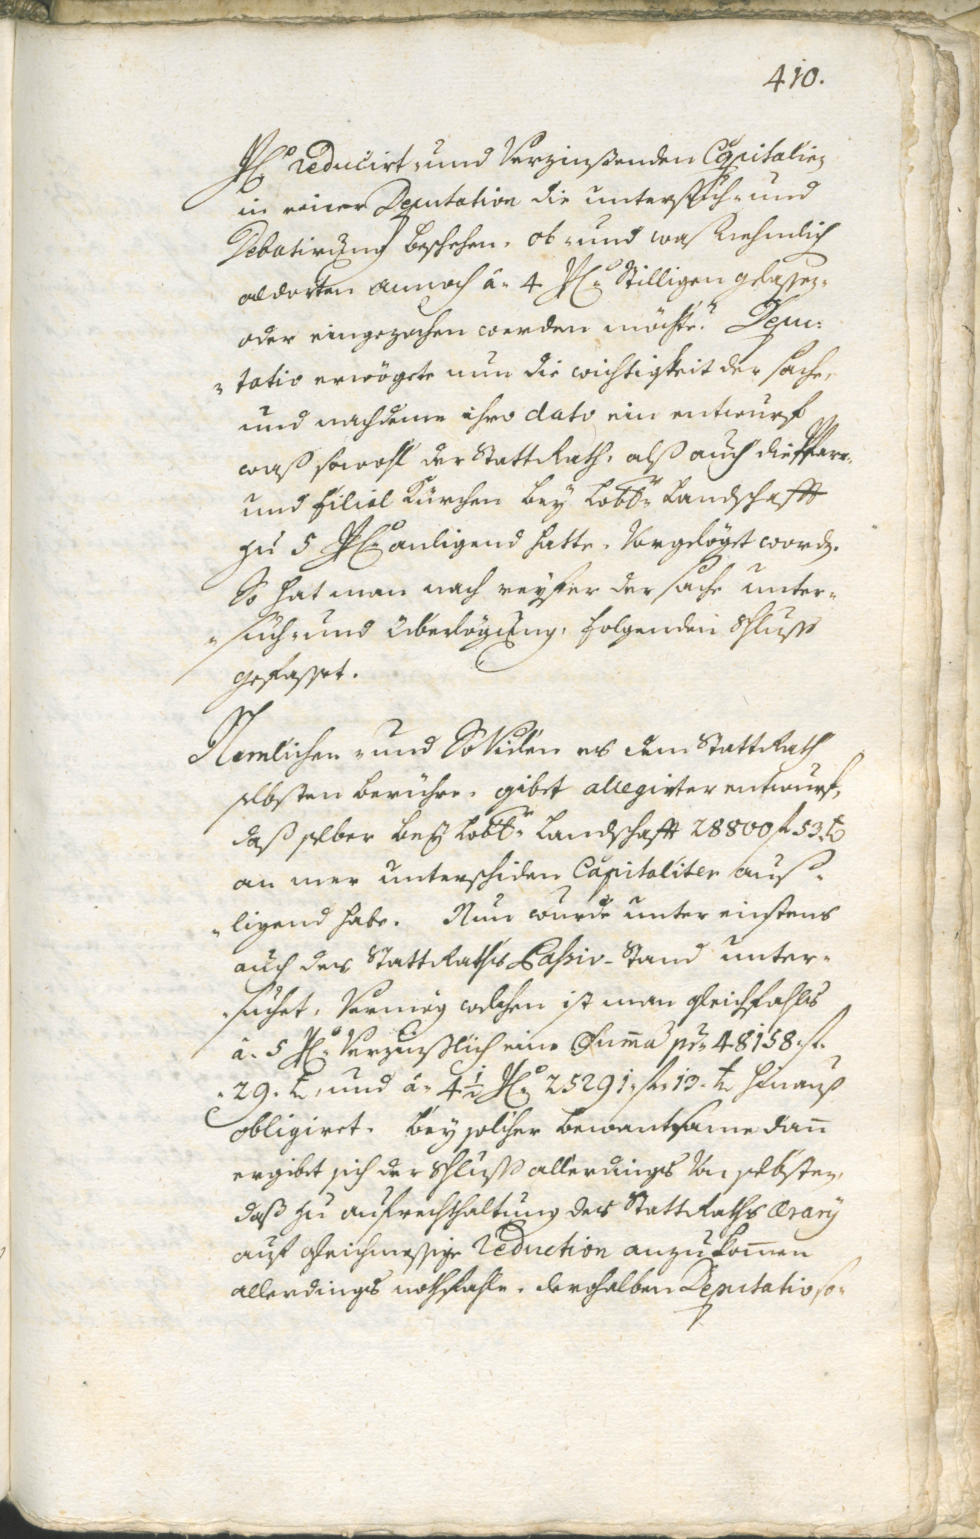 410.
P㏒ reducirt- und Verzinßenden Capitalien
in einer Deputation die untersuch- und
Debatirung beschehen, ob- und was nehmlich
aldorten annoch à 4 P Co stilligen gelassen-
oder eingezochen werden möchte? Depu-
tatio erwögete nun die wichtigkeit der sache,
und nachdeme ihro dato ein entwurf
waß sowohl der StattRath, alß auch die Pfarr-
und Filial Kürchen bey Lobl: Landschafft
zu 5 P Co anligend hatte, Vorgelöget word.
So hat man nach reyfer der sache unter-
such- und überlögung, folgenden Schluss
gefasset.
Nemlichen und So Vill es dem StattRath
selbsten berühre, gibet allegirter entwurf,
daß selber bey Lobl: Landschafft 28800 f 53 x
an mer unterschiden Capitalien auß-
ligend habe. Nun wurde unter einstens
auch des StattRaths Passiv-Stand unter-
suchet, Vermög welchen ist man gleichfahls
à 5 P Co Verzinßlich eine Summa per 48158 f
29 x, und à 4½ P Co 25291 f 13 x hinauß
obligiret. Bey solcher bewantsame dann
ergibet sich der Schluß allerdings Von selbsten,
daß zu aufrechthaltung des StattRaths Ærarÿ
auf gleichmessige Reduction anzukommen
allerdings nothfahle, derohalben Deputatio so-